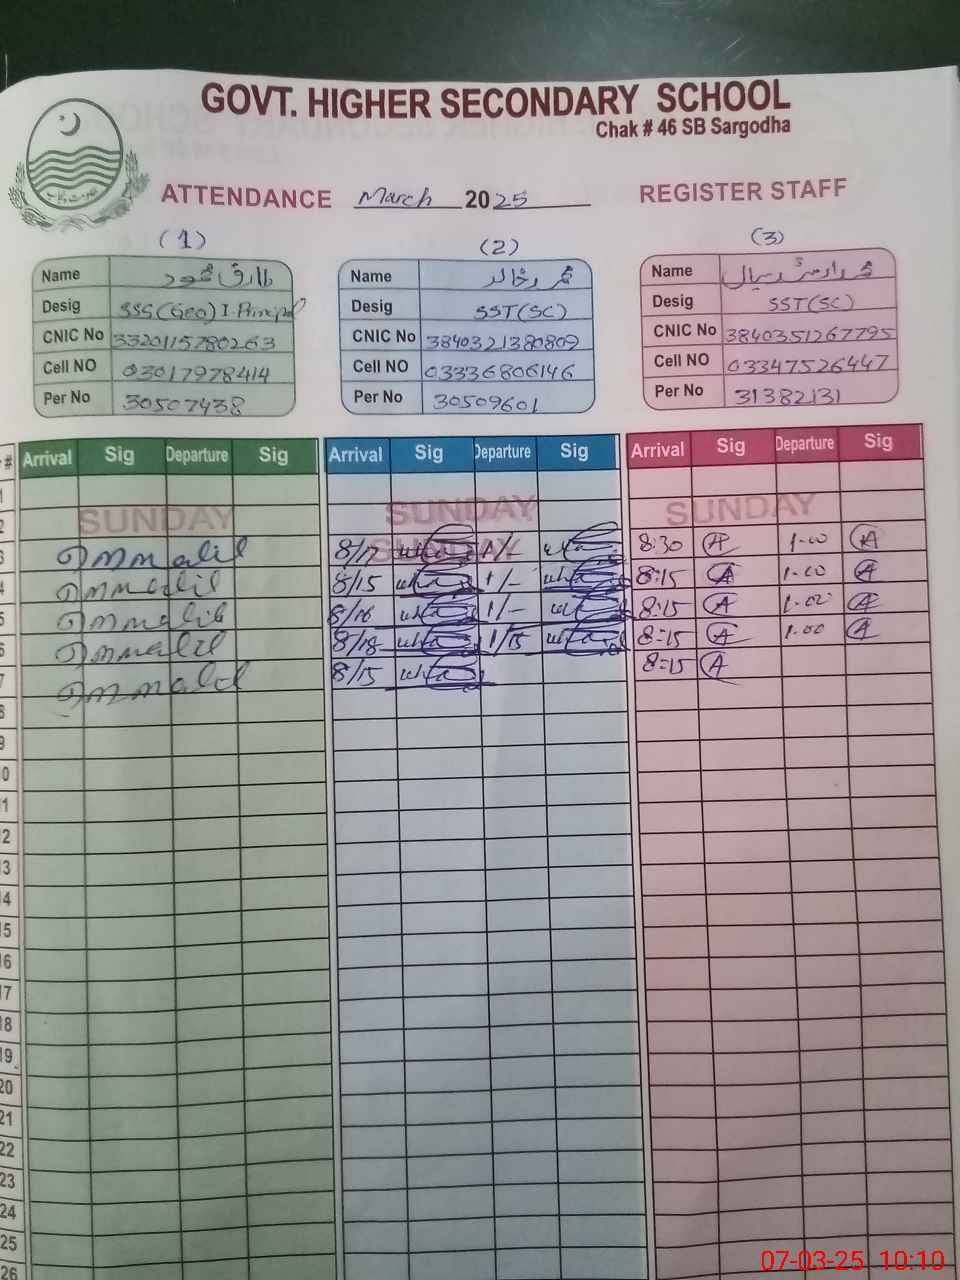 GOVT. HIGHER SECONDARY SCHOOL
Chak # 46 SB Sargodha
ATTENDANCE March 2025 REGISTER STAFF
(1) (2) (3)
Name طارق محمود
Desig SSS(Geo) I. Principal
CNIC No 3320115780263
Cell NO 03017978414
Per No 30507438
Name محمد خالد
Desig SST(SC)
CNIC No 3840321380809
Cell NO 03336806146
Per No 30509601
Name محمد ارشد سیال
Desig SST(SC)
CNIC No 3840351267795
Cell NO 03347526447
Per No 31382131
# Arrival Sig Departure Sig Arrival Sig Departure Sig Arrival Sig Departure Sig
1
2 SUNDAY SUNDAY SUNDAY
3 8/17 1/- 8:30 A 1-00 A
SUNDAY
4 8/15 1/- 8:15 A 1-00 A
5 8/16 1/- 8:15 A 1-00 A
6 8/18 1/15 8:15 A 1.00 A
7 8/15 8:15 A
8
9
10
11
12
13
14
15
16
17
18
19
20
21
22
23
24
25
26
07-03-25 10:10